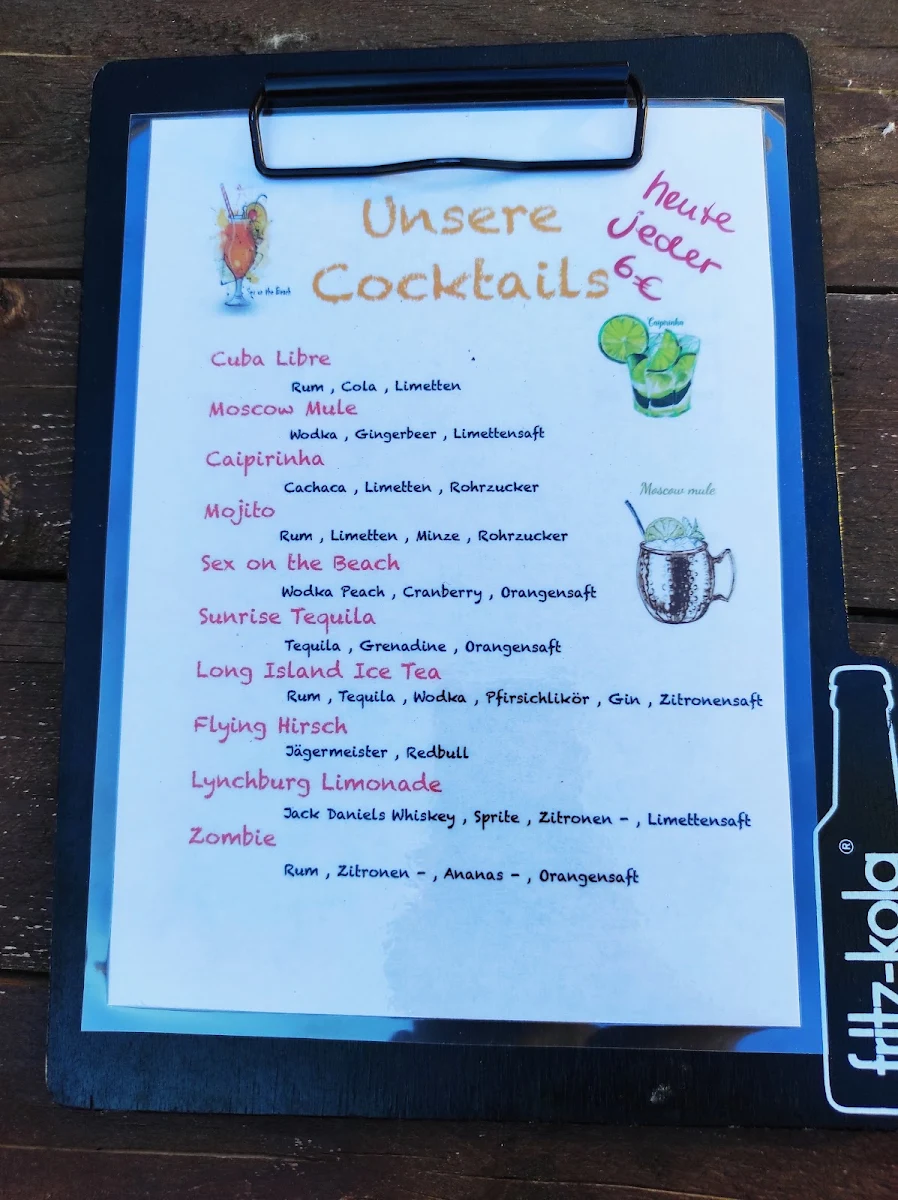 Unsere
Cocktails
heute
jeder
6€
Sex on the Beach
Caipirinha
Cuba Libre
Rum , Cola , Limetten
Moscow Mule
Wodka , Gingerbeer , Limettensaft
Caipirinha
Cachaca , Limetten , Rohrzucker
Moscow mule
Mojito
Rum , Limetten , Minze , Rohrzucker
Sex on the Beach
Wodka Peach , Cranberry , Orangensaft
Sunrise Tequila
Tequila , Grenadine , Orangensaft
Long Island Ice Tea
Rum , Tequila , Wodka , Pfirsichlikör , Gin , Zitronensaft
Flying Hirsch
Jägermeister , Redbull
Lynchburg Limonade
Jack Daniels Whiskey , Sprite , Zitronen - , Limettensaft
Zombie
Rum , Zitronen - , Ananas - , Orangensaft
fritz-kola®